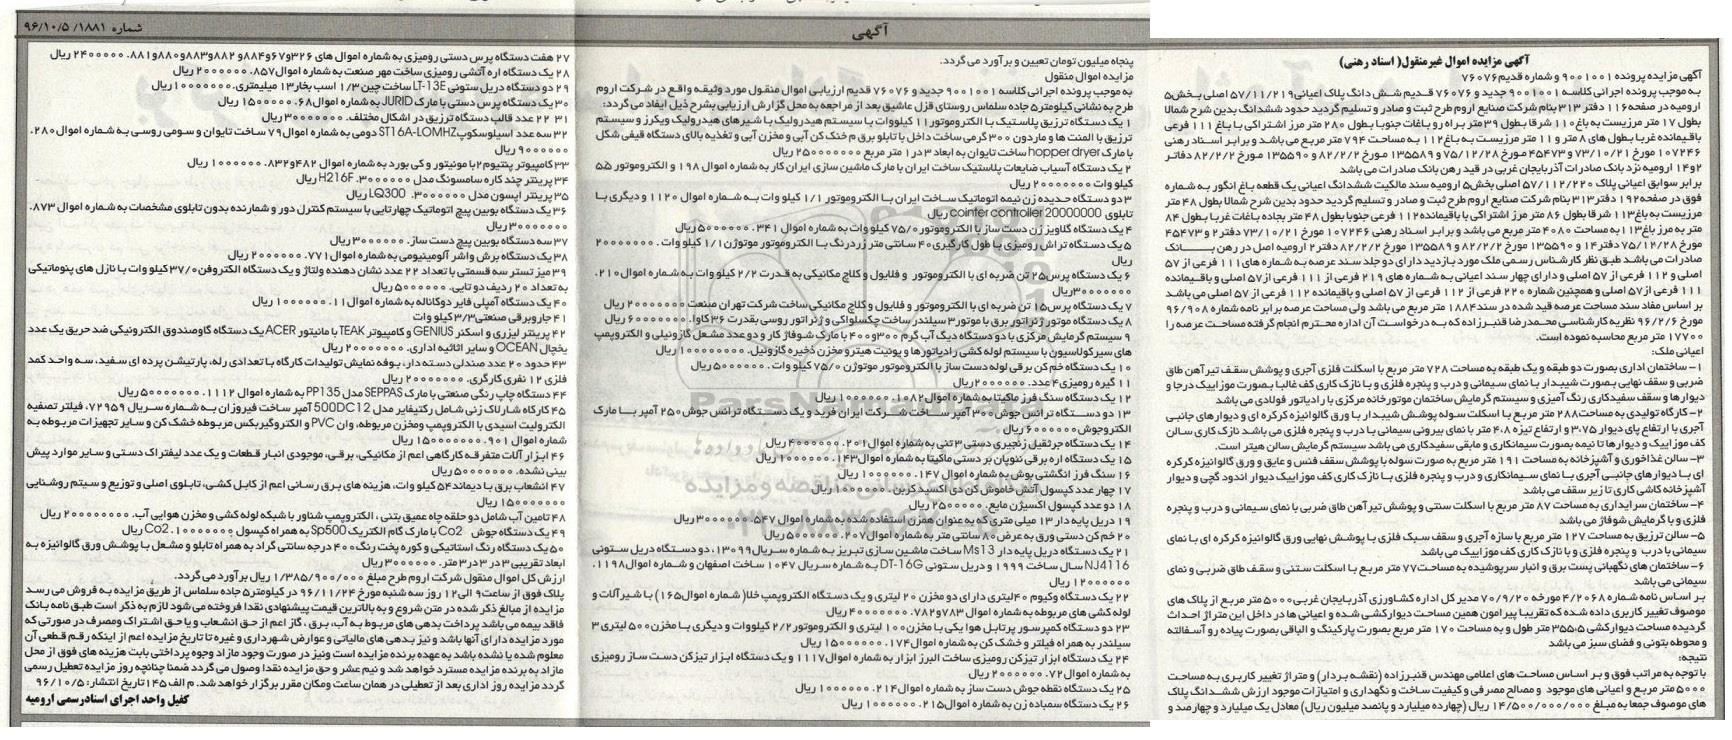 آگهی
شماره ۱۸۸۱/ ۹۶/۱۰/۵
آگهی مزایده اموال غیرمنقول( اسناد رهنی)
آگهی مزایده پرونده ۹۰۰۱۰۰۱ و شماره قدیم۷۶۰۷۶
به موجب پرونده اجرائی کلاسه ۹۰۰۱۰۰۱ جدید و ۷۶۰۷۶ قدیم شش دانگ پلاک اعیانی۵۷/۱۱/۲۱۹ اصلی بخش۵
ارومیه در صفحه۱۱۶ دفتر ۳۱۳ بنام شرکت صنایع اروم طرح ثبت و صادر و تسلیم گردید حدود ششدانگ بدین شرح شمالا
بطول ۱۷ متر مرزیست به باغ۱۱۰ شرقا بطول ۳۹ متر براه رو باغات جنوبا بطول ۲۸۰ متر مرز اشتراکی با باغ ۱۱۱ فرعی
باقیمانده غربا بطول های ۸ متر و ۱۱ متر مرزیست به باغ ۱۱۲ به مساحت ۷۹۴ متر مربع می باشد و برابر اسناد رهنی
۱۰۷۲۴۶ مورخ ۷۳/۱۰/۲۱ و ۴۵۴۷۳ مورخ ۷۵/۱۲/۲۸ و ۱۳۵۵۸۹ مورخ ۸۲/۲/۲ و ۱۳۵۵۹۰ مورخ ۸۲/۲/۲ دفاتر
۲و۱۴ ارومیه نزد بانک صادرات آذربایجان غربی در قید رهن بانک صادرات می باشد
برابر سوابق اعیانی پلاک ۵۷/۱۱۲/۲۲۰ اصلی بخش۵ ارومیه سند مالکیت ششدانگ اعیانی یک قطعه باغ انگور به شماره
فوق در صفحه۱۹۲ دفتر ۳۱۳ بنام شرکت صنایع اروم طرح ثبت و صادر و تسلیم گردید حدود بدین شرح شمالا بطول ۴۸ متر
مرزیست به باغ۱۱۳ شرقا بطول ۸۶ متر مرز اشتراکی با باقیمانده۱۱۲ فرعی جنوبا بطول ۴۸ متر بجاده باغات غربا بطول ۸۴
متر به مرز باغ۱۱۳ به مساحت ۴۰۸۰ متر مربع می باشد و برابر اسناد رهنی ۱۰۷۲۴۶ مورخ ۷۳/۱۰/۲۱ دفتر ۲ و ۴۵۴۷۳
مورخ ۷۵/۱۲/۲۸ دفتر۱۴ و ۱۳۵۵۹۰ مورخ ۸۲/۲/۲ و ۱۳۵۵۸۹ مورخ ۸۲/۲/۲ دفتر۲ ارومیه اصل در رهن بانک
صادرات می باشد طبق نظر کارشناس رسمی ملک مورد بازدید دارای دو جلد سند عرصه به شماره های ۱۱۱ فرعی از ۵۷
اصلی و ۱۱۲ فرعی از ۵۷ اصلی و دارای چهار سند اعیانی به شماره های ۲۱۹ فرعی از ۱۱۱ فرعی از۵۷ اصلی و باقیمانده
۱۱۱ فرعی از ۵۷ اصلی و همچنین شماره ۲۲۰ فرعی از ۱۱۲ فرعی از ۵۷ اصلی و باقیمانده ۱۱۲ فرعی از ۵۷ اصلی می باشد
بر اساس مفاد سند مساحت عرصه قید شده در سند۱۸۸۴ متر مربع می باشد ولی مساحت عرصه برابر نامه شماره ۹۶/۹۰۸
مورخ ۹۶/۲/۶ نظریه کارشناسی محمدرضا قنبرزاده که به درخواست آن اداره محترم انجام گرفته مساحت عرصه را
۱۷۷۰۰ متر مربع محاسبه نموده است.
اعیانی ملک:
۱- ساختمان اداری بصورت دو طبقه و یک طبقه به مساحت ۷۲۸ متر مربع با اسکلت فلزی آجری و پوشش سقف تیرآهن طاق
ضربی و سقف نهایی بصورت شیبدار با نمای سیمانی و درب و پنجره فلزی و با نازک کاری کف غالبا بصورت موزاییک درجا و
دیوارها و سقف سفیدکاری رنگ آمیزی و سیستم گرمایش ساختمان موتورخانه مرکزی با رادیاتور فولادی می باشد
۲- کارگاه تولیدی به مساحت۲۸۸ متر مربع با اسکلت سوله پوشش شیبدار با ورق گالوانیزه کرکره ای و دیوارهای جانبی
آجری با ارتفاع پای دیوار ۳٫۷۵ و ارتفاع تیزه ۴٫۸ متر با نمای بیرونی سیمانی با درب و پنجره فلزی می باشد نازک کاری سالن
کف موزاییک و دیوارها تا نیمه بصورت سیمانکاری و مابقی سفیدکاری می باشد سیستم گرمایش سالن هیتر است.
۳- سالن غذاخوری و آشپزخانه به مساحت ۱۹۱ متر مربع به صورت سوله با پوشش سقف فنس و عایق و ورق گالوانیزه کرکره
ای با دیوارهای جانبی آجری با نمای سیمانکاری و درب و پنجره فلزی با نازک کاری کف موزاییک دیوار اندود گچی و دیوار
آشپزخانه کاشی کاری تا زیر سقف می باشد
۴- ساختمان سرایداری به مساحت ۸۷ متر مربع با اسکلت سنتی و پوشش تیرآهن طاق ضربی با نمای سیمانی و درب و پنجره
فلزی و با گرمایش شوفاژ می باشد
۵- سالن تزریق به مساحت ۱۲۷ متر مربع با سازه آجری و سقف سبک فلزی با پوشش نهایی ورق گالوانیزه کرکره ای با نمای
سیمانی با درب و پنجره فلزی و با نازک کاری کف موزاییک می باشد
۶- ساختمان های نگهبانی پست برق و انبار سرپوشیده به مساحت۷۷ متر مربع با اسکلت سنتی و سقف طاق ضربی و نمای
سیمانی می باشد
بر اساس نامه شماره ۴/۲۰۶۸ مورخه ۷۰/۹/۲۰ مدیر کل اداره کشاورزی آذربایجان غربی۵۰۰۰ متر مربع از پلاک های
موصوف تغییر کاربری داده شده که تقریبا پیرامون همین مساحت دیوارکشی شده و اعیانی ها در داخل این متراژ احداث
گردیده مساحت دیوارکشی ۳۵۵٫۵ متر طول و به مساحت ۱۷۰ متر مربع بصورت پارکینگ و الباقی بصورت پیاده رو آسفالته
و محوطه بتونی و فضای سبز می باشد
نتیجه:
با توجه به مراتب فوق و بر اساس مساحت های اعلامی مهندس قنبرزاده (نقشه بردار) و متراژ تغییر کاربری به مساحت
۵۰۰۰ متر مربع و اعیانی های موجود و مصالح مصرفی و کیفیت ساخت و نگهداری و امتیازات موجود ارزش ششدانگ پلاک
های موصوف جمعا به مبلغ ۱۴/۵۰۰/۰۰۰/۰۰۰ ریال (چهارده میلیارد و پانصد میلیون ریال) معادل یک میلیارد و چهارصد و
پنجاه میلیون تومان تعیین و برآورد می گردد.
مزایده اموال منقول
به موجب پرونده اجرائی کلاسه ۹۰۰۱۰۰۱ جدید و ۷۶۰۷۶ قدیم ارزیابی اموال منقول مورد وثیقه واقع در شرکت اروم
طرح به نشانی کیلومتر۵ جاده سلماس روستای قزل عاشیق بعد از مراجعه به محل گزارش ارزیابی بشرح ذیل ایفاد می گردد:
۱ یک دستگاه تزریق پلاستیک با الکتروموتور۱۱ کیلووات با سیستم هیدرولیک با شیرهای هیدرولیک ویکرز و سیستم
ترزیق با المنت ها و ماردون ۳۰۰ گرمی ساخت داخل با تابلو برق م خنک کن آبی و مخزن آبی و تغذیه بالای دستگاه قیفی شکل
با مارک hopper dryer ساخت تایوان به ابعاد ۳ در۱ متر مربع ۲۵۰۰۰۰۰۰۰ ریال
۲ یک دستگاه آسیاب ضایعات پلاستیک ساخت ایران با مارک ماشین سازی ایران کار به شماره اموال ۱۹۸ و الکتروموتور ۵٫۵
کیلو وات ۲۰۰۰۰۰۰۰ ریال
۳ دو دستگاه حدیده زن نیمه اتوماتیک ساخت ایران با الکتروموتور ۱/۱ کیلو وات به شماره اموال ۱۱۲۰ و دیگری با
تابلوی cointer controller 20000000 ریال
۴ یک دستگاه گلاویز زن دست ساز با الکتروموتور ۷۵/۰ کیلو وات به شماره اموال ۳۴۱. ۵۰۰۰۰۰۰ ریال
۵ یک دستگاه تراش رومیزی با طول کارگیری۴۰ سانتی متر زردرنگ با الکتروموتور موتوژن۱/۱ کیلو وات. ۲۰۰۰۰۰۰۰
ریال
۶ یک دستگاه پرس۲۵ تن ضربه ای با الکتروموتور و فلایول و کلاچ مکانیکی به قدرت ۲/۲ کیلو وات به شماره اموال۲۱۰.
۳۰۰۰۰۰۰۰ریال
۷ یک دستگاه پرس۱۵ تن ضربه ای با الکتروموتور و فلایول و کلاچ مکانیکی ساخت شرکت تهران صنعت ۲۰۰۰۰۰۰۰ ریال
۸ یک دستگاه موتور ژنراتور برق با موتور۳ سیلندر ساخت چکسلواکی و ژنراتور روسی بقدرت ۳۶ کاوا. ۶۰۰۰۰۰۰۰ ریال
۹ سیستم گرمایش مرکزی با دو دستگاه دیگ آب گرم ۳۰۰و۴۰۰ با مارک شوفاژ کار و دو عدد مشعل گازوئیلی و الکتروپمپ
های سیرکولاسیون با سیستم لوله کشی رادیاتورها و یونیت هیتر و مخزن ذخیره گازوئیل. ۱۰۰۰۰۰۰۰۰ ریال
۱۰ یک دستگاه خم کن برقی لوله دست ساز با الکتروموتور موتوژن ۷۵/۰ کیلو وات. ۵۰۰۰۰۰۰ریال
۱۱ گیره رومیزی۴ عدد. ۲۰۰۰۰۰۰ریال
۱۲ یک دستگاه سنگ فرز ماکیتا به شماره اموال۱۰۸۲. ۱۰۰۰۰۰۰ ریال
۱۳ دو دستگاه ترانس جوش۳۰۰ آمپر ساخت شرکت ایران فرید و یک دستگاه ترانس جوش۲۵۰ آمپر با مارک
الکتروجوش۶۰۰۰۰۰۰ ریال
۱۴ یک دستگاه جرثقیل زنجیری دستی ۳ تنی به شماره اموال۲۰۱. ۴۰۰۰۰۰۰ ریال
۱۵ یک دستگاه اره برقی نئوپان بر دستی ماکیتا به شماره اموال۱۴۳. ۱۰۰۰۰۰۰ ریال
۱۶ سنگ فرز انگشتی بوش به شماره اموال ۱۴۷. ۱۰۰۰۰۰۰ ریال
۱۷ چهار عدد کپسول آتش خاموش کن دی اکسید کربن. ۱۰۰۰۰۰۰ ریال
۱۸ دو عدد کپسول اکسیژن مایع. ۲۵۰۰۰۰۰ ریال
۱۹ دریل پایه دار ۱۳ میلی متری که به عنوان همزن استفاده شده به شماره اموال ۵۴۷. ۳۰۰۰۰۰۰ ریال
۲۰ خم کن دستی ورق به عرض ۸۰ سانتی متر به شماره اموال۲۰۷. ۵۰۰۰۰۰۰ ریال
۲۱ یک دستگاه دریل پایه دار Ms13 ساخت ماشین سازی تبریز به شماره سریال۱۳۰۹۹، دو دستگاه دریل ستونی
NJ4116 سال ساخت ۱۹۹۹ و دریل ستونی DT-16G به شماره سریال ۱۰۴۷ ساخت اصفهان و شماره اموال۱۱۹۸.
۱۲۰۰۰۰۰۰ ریال
۲۲ یک دستگاه وکیوم ۴۰ لیتری دارای دو مخزن ۲۰ لیتری و یک دستگاه الکتروپمپ خلا( شماره اموال۱۶۵) با شیرآلات و
لوله کشی های مربوطه به شماره اموال ۷۸۳و۷۸۲. ۴۰۰۰۰۰۰۰ ریال
۲۳ دو دستگاه کمپرسور پرتابل هوا یکی با مخزن۱۰۰ لیتری و الکتروموتور ۲/۲ کیلووات و دیگری با مخزن ۵۰۰ لیتری ۳
سیلندر به همراه فیلتر و خشک کن به شماره اموال۱۷۴. ۱۵۰۰۰۰۰۰ ریال
۲۴ یک دستگاه ابزار تیزکن رومیزی ساخت البرز ابزار به شماره اموال۱۱۱۷ و یک دستگاه ابزار تیزکن دست ساز رومیزی
به شماره اموال۷۲. ۲۰۰۰۰۰۰ ریال
۲۵ یک دستگاه نقطه جوش دست ساز به شماره اموال۲۱۴. ۱۰۰۰۰۰۰ ریال
۲۶ یک دستگاه سمباده زن به شماره اموال۲۱۵. ۱۰۰۰۰۰۰ ریال
۲۷ هفت دستگاه پرس دستی رومیزی به شماره اموال های ۳۲۶و۶۷و۸۸۴و ۸۸۲و۸۸۳و۸۸۰و۸۸۱. ۲۴۰۰۰۰۰۰ ریال
۲۸ یک دستگاه اره آتشی رومیزی ساخت مهر صنعت به شماره اموال۸۵۷. ۲۰۰۰۰۰۰ ریال
۲۹ دو دستگاه دریل ستونی LT-13E ساخت چین ۱/۳ اسب بخار۱۳ میلیمتری. ۱۰۰۰۰۰۰۰ ریال
۳۰ یک دستگاه پرس دستی با مارک JURID به شماره اموال۶۸. ۱۵۰۰۰۰۰ ریال
۳۱ ۲۲ عدد قالب دستگاه ترزیق در اشکال مختلف. ۳۰۰۰۰۰۰۰ ریال
۳۲ سه عدد اسیلوسکوپST16A-LOMHZ دومی به شماره اموال۷۹ ساخت تایوان و سومی روسی به شماره اموال۲۸۰.
۹۰۰۰۰۰۰ ریال
۳۳ کامپیوتر پنتیوم۲ با مونیتور و کی بورد به شماره اموال ۴۸۲و۸۳۲. ۱۰۰۰۰۰۰ ریال
۳۴ پرینتر چند کاره سامسونگ مدل H216F .۳۰۰۰۰۰۰ ریال
۳۵ پرینتر اپسون مدل LQ300 .۳۰۰۰۰۰۰ ریال
۳۶ یک دستگاه بوبین پیچ اتوماتیک چهارتایی با سیستم کنترل دور و شمارنده بدون تابلوی مشخصات به شماره اموال ۸۷۳.
۳۰۰۰۰۰۰۰ ریال
۳۷ سه دستگاه بوبین پیچ دست ساز. ۳۰۰۰۰۰۰ ریال
۳۸ یک دستگاه برش واشر آلومینیومی به شماره اموال ۷۷۱. ۲۰۰۰۰۰۰ ریال
۳۹ میز تستر سه قسمتی با تعداد ۲۲ عدد نشان دهنده ولتاژ و یک دستگاه الکتروفن۳۷/۰ کیلو وات با نازل های پنوماتیکی
به تعداد ۲۰ ردیف دو تایی. ۵۰۰۰۰۰۰ ریال
۴۰ یک دستگاه آمپلی فایر دوکاناله به شماره اموال۱۱. ۱۰۰۰۰۰۰ ریال
۴۱ جاروبرقی صنعتی۳/۳ کیلو وات
۴۲ پرینتر لیزری و اسکنر GENIUS و کامپیوتر TEAK با مانیتور ACER یک دستگاه گاوصندوق الکترونیکی ضد حریق یک عدد
یخچال OCEAN و سایر اثاثیه اداری. ۲۰۰۰۰۰۰۰ ریال
۴۳ حدود ۲۰ عدد صندلی دسته دار، بوفه نمایش تولیدات کارگاه با تعدادی رله، پارتیشن پرده ای سفید، سه واحد کمد
فلزی ۱۲ نفری کارگری. ۲۰۰۰۰۰۰۰ ریال
۴۴ دستگاه چاپ رنگی صنعتی با مارک SEPPAS مدل PP135 به شماره اموال ۱۱۱۲. ۵۰۰۰۰۰۰۰ ریال
۴۵ کارگاه شارلاک زنی شامل رکتیفایر مدل 500DC12 آمپر ساخت فیروزان به شماره سریال ۷۲۹۵۹، فیلتر تصفیه
الکترولیت اسیدی با الکتروپمپ ومخزن مربوطه، وان PVC و الکتروگیربکس مربوطه خشک کن و سایر تجهیزات مربوطه به
شماره اموال ۹۰۱. ۱۵۰۰۰۰۰۰۰ ریال
۴۶ ابزار آلات متفرقه کارگاهی اعم از مکانیکی، برقی، موجودی انبار قطعات و یک عدد لیفتراک دستی و سایر موارد پیش
بینی نشده. ۵۰۰۰۰۰۰۰ ریال
۴۷ انشعاب برق با دیماند۵۴ کیلو وات، هزینه های برق رسانی اعم از کابل کشی، تابلوی اصلی و توزیع و سیتم روشنایی
۱۵۰۰۰۰۰۰۰ ریال
۴۸ تامین آب شامل دو حلقه چاه عمیق بتنی، الکتروپمپ شناور با شبکه لوله کشی و مخزن هوایی آب. ۲۰۰۰۰۰۰۰۰ ریال
۴۹ یک دستگاه جوش Co2 با مارک گام الکتریک Sp500 به همراه کپسول Co2 .۱۰۰۰۰۰۰۰ ریال
۵۰ یک دستگاه رنگ استاتیکی و کوره پخت رنگ ۴۰۰ درجه سانتی گراد به همراه تابلو و مشعل با پوشش ورق گالوانیزه به
ابعاد تقریبی ۳ در ۳ در ۳ متر. ۳۰۰۰۰۰۰۰ ریال
ارزش کل اموال منقول شرکت اروم طرح مبلغ ۱/۳۸۵/۹۰۰/۰۰۰ ریال برآورد می گردد.
پلاک فوق از ساعت۹ الی ۱۲ روز سه شنبه مورخ ۹۶/۱۱/۲۴ در کیلومتر۵ جاده سلماس از طریق مزایده به فروش می رسد
مزایده از مبالغ ذکر شده در متن شروع و به بالاترین قیمت پیشنهادی نقدا فروخته می شود لازم به ذکر است طبق نامه بانک
فاقد بیمه می باشد پرداخت بدهی های مربوط به آب، برق، گاز اعم از حق انشعاب و یا حق اشتراک ومصرف در صورتی که
مورد مزایده دارای آنها باشد و نیز بدهی های مالیاتی و عوارض شهرداری و غیره تا تاریخ مزایده اعم از اینکه رقم قطعی آن
معلوم شده یا نشده باشد به عهده برنده مزایده است ونیز در صورت وجود مازاد وجوه پرداختی بابت هزینه های فوق از محل
مازاد به برنده مزایده مسترد خواهد شد و نیم عشر و حق مزایده نقدا وصول می گردد ضمنا چنانچه روز مزایده تعطیل رسمی
گردد مزایده روز اداری بعد از تعطیلی در همان ساعت ومکان مقرر برگزار خواهد شد. م الف ۱۴۵ تاریخ انتشار: ۹۶/۱۰/۵
کفیل واحد اجرای اسنادرسمی ارومیه